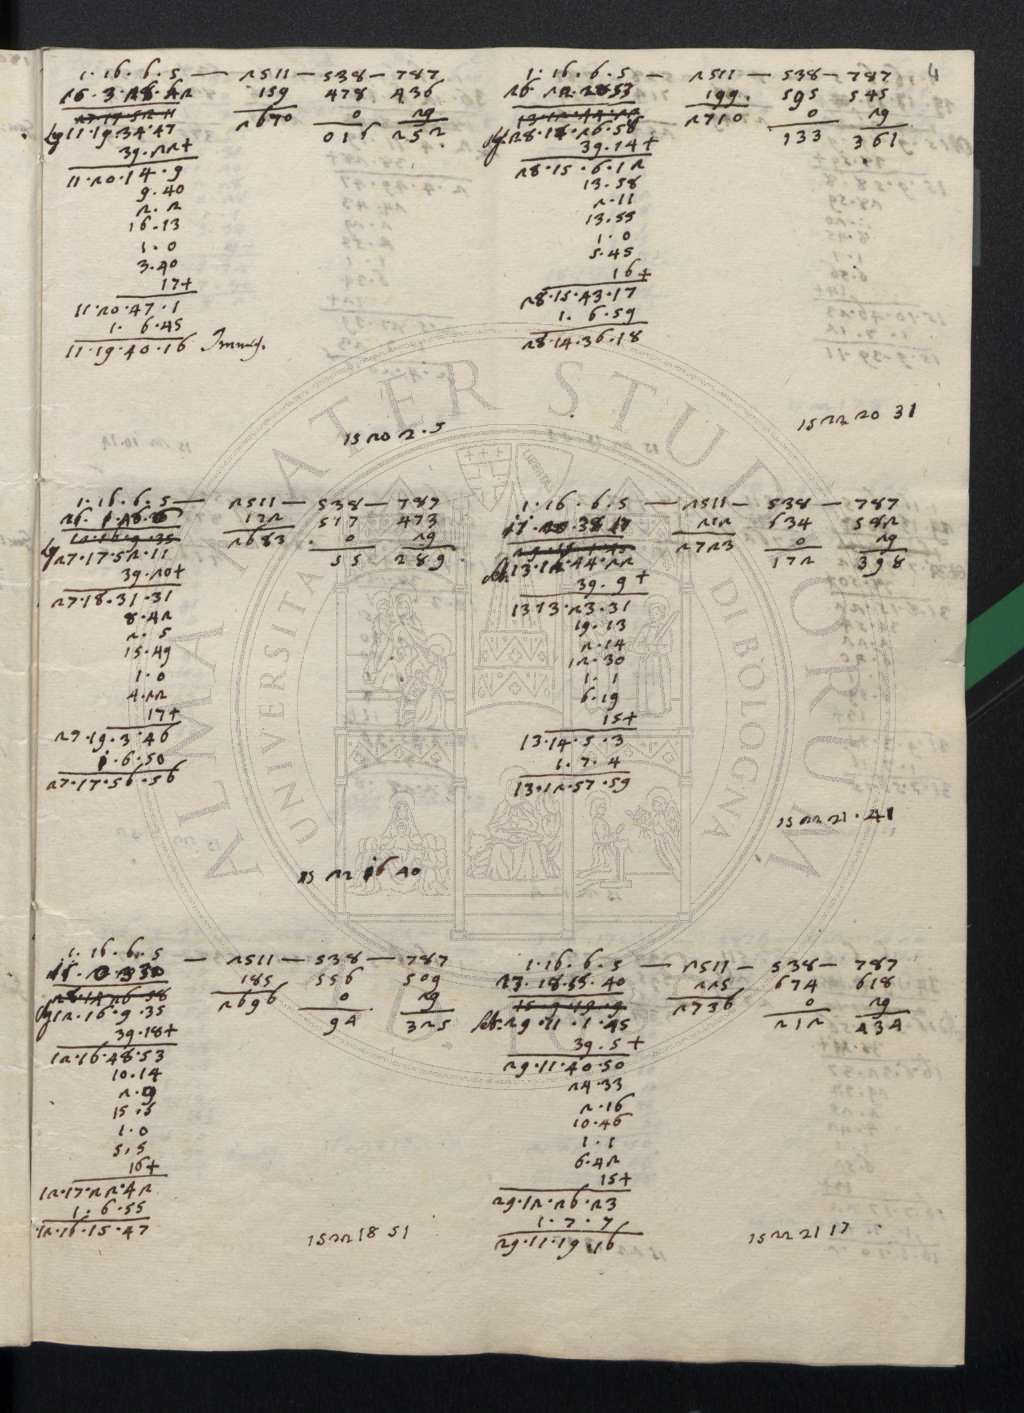 1·16·6·5 — 2511 — 538 — 787
26·3·28·42 159 478 436
27·17·52·11 0 29
11·19·34·47 2670 016 252
39·22+
11·20·14·9
9·40
2·2
16·13
1·0
3·40
17+
11·20·47·1
1·6·45
11·19·40·16
15 20 2·5
1·16·6·5 — 2511 — 538 — 787
199 595 545
13·12·44·22 0 29
28·14·26·58 2710 133 361
39·14+
28·15·6·12
13·58
2·11
13·55
1·0
5·45
16+
28·15·43·17
1·6·59
28·14·36·18
15 22 20 31
1·16·6·5 — 2511 — 538 — 787
172 517 473
12·16·9·35 0 29
27·17·52·11 2683 55 289
39·20+
27·18·31·31
8·42
2·5
15·49
1·0
4·22
17+
27·19·3·46
1·6·50
27·17·56·56
15 22 16 40
1·16·6·5 — 2511 — 538 — 787
212 634 582
29·11·1·45 0 29
13·12·44·22 2723 172 398
39·9+
13 13·23·31
19·13
2·14
12·30
1·1
6·19
15+
13·14·5·3
1·7·4
13·12·57·59
15 22 21·41
1·16·6·5 — 2511 — 538 — 787
185 556 509
28·14·26·58 0 29
12·16·9·35 2696 94 325
39·18+
12·16·48·53
10·14
2·9
15·5
1·0
5·5
16+
12·17·22·42
1·6·55
12·16·15·47
15 22 18 51
1·16·6·5 — 2511 — 538 — 787
13·18·55·40 225 674 618
0 29
29·11·1·45 2736 212 434
39·5+
29·11·40·50
24·33
2·16
10·46
1·1
6·42
15+
29·12·26·23
1·7·7
29·11·19·16
15 22 21 17
4
ALMA MATER STUDIORUM
UNIVERSITA DI BOLOGNA